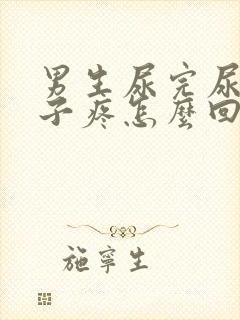 男生尿完尿
子疼怎麼回
施寧生